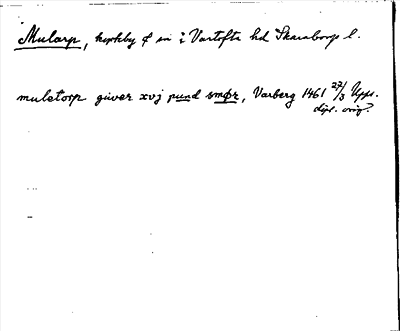 Mularp, kyrkby o sn i Vartofta hd Skaraborgs l.
muletorp giuer xvj pund smør, Varberg 1461 27/3 Upps.
dipl. orig?